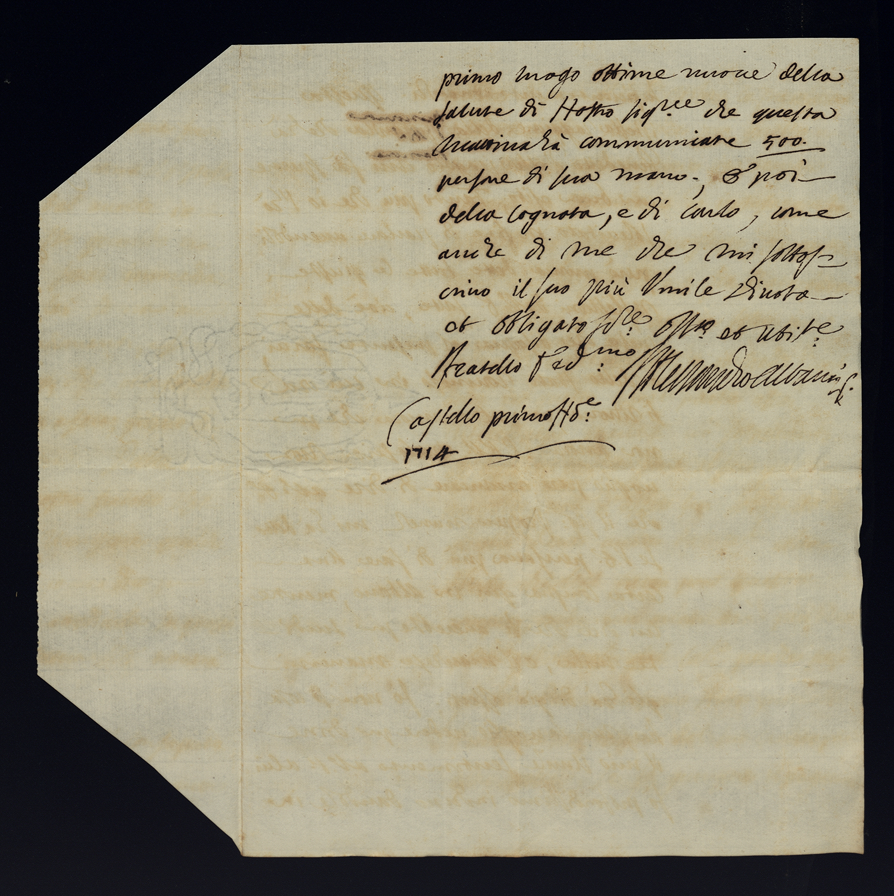 primo luogo ottime nuove della
salute di Nostro sig.re che questa
mattina hà communicate 500.
persone di sua mano. , e poi
della Cognata, e di Carlo, come
anche di me che mi sottos-
crivo il suo più Umile Divoto
et obligato et
fratello
Castello primo
1714